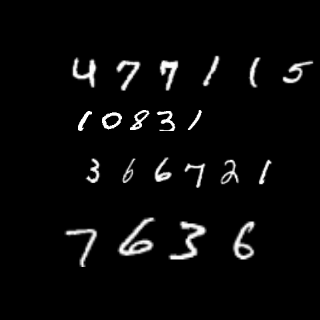 477115
10831
366721
7636